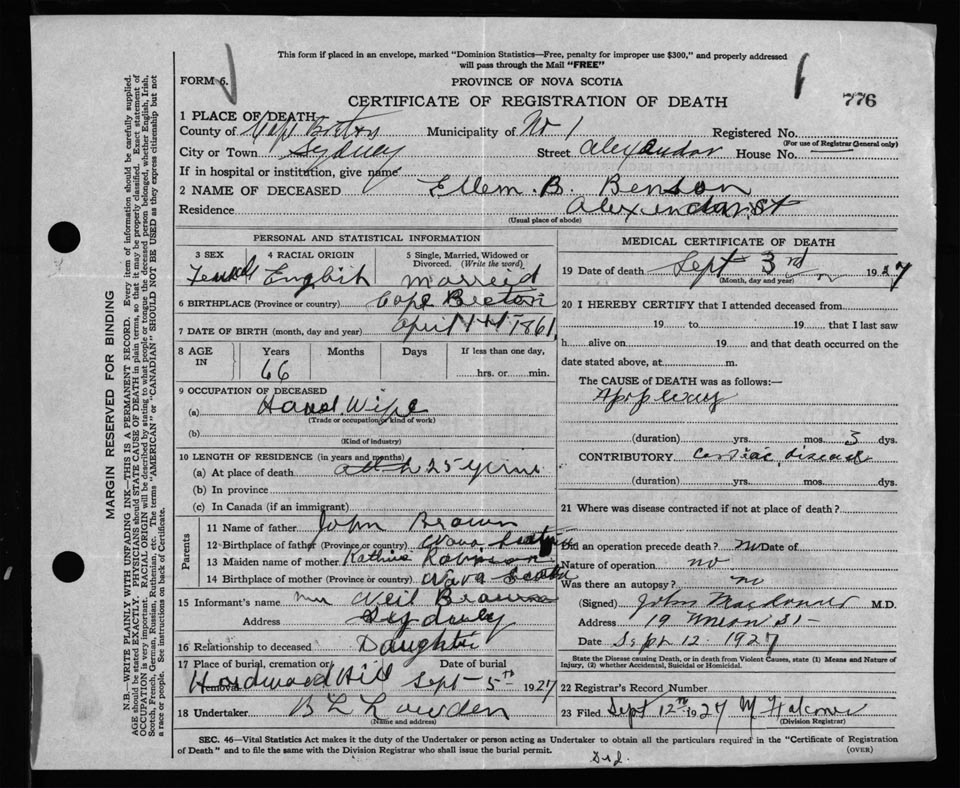 This form if placed in an envelope, marked "Dominion Statistics—Free, penalty for improper use $300," and properly addressed
will pass through the Mail "FREE"
FORM 6.
PROVINCE OF NOVA SCOTIA
CERTIFICATE OF REGISTRATION OF DEATH
776
1 PLACE OF DEATH
County of Cape Breton Municipality of No 1 Registered No.
(For use of Registrar General only)
City or Town Sydney Street Alexandar House No.
If in hospital or institution, give name
2 NAME OF DECEASED Ellem. B. Benson
Residence
(Usual place of abode)
PERSONAL AND STATISTICAL INFORMATION
3 SEX 4 RACIAL ORIGIN 5 Single, Married, Widowed or
Divorced. (Write the word)
Female English Marreid
6 BIRTHPLACE (Province or country) Cape Breton
7 DATE OF BIRTH (month, day and year) April 1861
8 AGE IN Years Months Days If less than one day,
66 hrs. or min.
9 OCCUPATION OF DECEASED
(a) Wife
(Trade or occupation or kind of work)
(b)
(Kind of industry)
10 LENGTH OF RESIDENCE (in years and months)
(a) At place of death 25
(b) In province
(c) In Canada (if an immigrant)
Parents
11 Name of father John Brown
12 Birthplace of father (Province or country) Nova
13 Maiden name of mother
14 Birthplace of mother (Province or country) Nova Scotia
15 Informant's name Neil
Address Sydney
16 Relationship to deceased Daughter
17 Place of burial, cremation or Date of burial
removal Hardwood Hill Sept 5th 1927
18 Undertaker
(Name and address)
MEDICAL CERTIFICATE OF DEATH
19 Date of death Sept 3rd 1927
(Month, day and year)
20 I HEREBY CERTIFY that I attended deceased from
19 to 19 that I last saw
h alive on 19 and that death occurred on the
date stated above, at m.
The CAUSE OF DEATH was as follows:—
(duration) yrs. mos. 3 dys.
CONTRIBUTORY Cardiac disease
(duration) yrs. mos. dys.
21 Where was disease contracted if not at place of death?
Did an operation precede death? no Date of
Nature of operation no
Was there an autopsy? no
(Signed) John M.D.
Address 19 Union St
Date Sept 12. 1927
State the Disease causing Death, or in death from Violent Causes, state (1) Means and Nature of
Injury, (2) whether Accidental, Suicidal or Homicidal.
22 Registrar's Record Number
23 Filed Sept 12th 1927
(Division Registrar)
SEC. 46—Vital Statistics Act makes it the duty of the Undertaker or person acting as Undertaker to obtain all the particulars required in the "Certificate of Registration
of Death" and to file the same with the Division Registrar who shall issue the burial permit. (OVER)
MARGIN RESERVED FOR BINDING
N.B.—WRITE PLAINLY WITH UNFADING INK—THIS IS A PERMANENT RECORD. Every item of information should be carefully supplied.
AGE should be stated EXACTLY. PHYSICIANS should STATE CAUSE OF DEATH in plain terms, so that it may be properly classified. Exact statement of
OCCUPATION is very important. RACIAL ORIGIN will be described by stating to what people or tongue the deceased person belonged, whether English, Irish,
Scotch, French, German, Russian, Ruthenian, etc. The terms "AMERICAN" or "CANADIAN" SHOULD NOT BE USED as they express citizenship but not
a race or people. See instructions on back of Certificate.